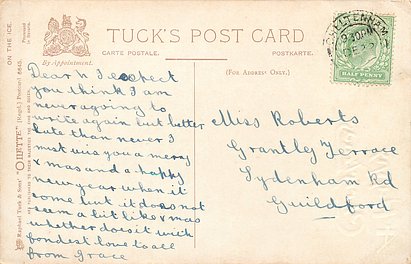 TUCK'S POST CARD
CARTE POSTALE.
POSTKARTE.
By Appointment.
(FOR ADDRESS ONLY.)
ON THE ICE.
Raphael Tuck & Sons' "OILETTE" [Regd.] Postcard 8645.
CHELTENHAM
HALF PENNY
Dear I expect
you think I am
never going to
write again but better
late than never I
must wis you a merry
xmas and a happy
new year when it
come but it does not
seem a bit like xmas
whether does it with
fondest love to all
from Grace
Miss Roberts
Grantley Terrace
Sydenham Rd
Guildford